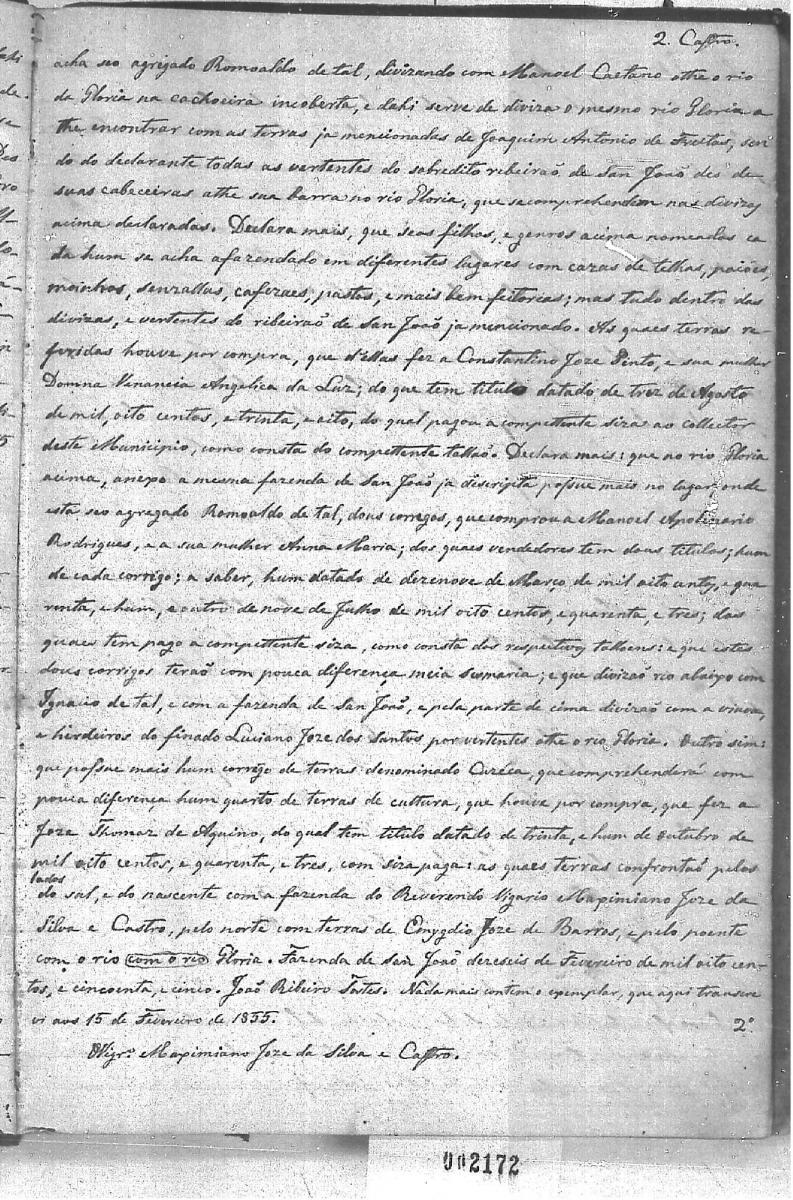 2. Castro.
acha seo agregado Romoaldo de tal, divizando com Manoel Caetano athe o rio
da Gloria na cachoeira incoberta, e dahi serve de diviza o mesmo rio Gloria a
the encontrar com as terras ja mencionadas de Joaquim Antonio de Freitas, sen
do do declarante todas as vertentes do sobredito ribeirão de San João des de
suas cabeceiras athe sua barra no rio Gloria, que se comprehendem nas divizas
acima declaradas. Declara mais, que seos filhos, e genros acima nomeados ca
da hum se acha afazendado em diferentes lugares com cazas de telhas, paióes,
moinhos, senzallas, cafezaes, pastos, e mais bem feitorias; mas tudo dentro das
divizas, e vertentes do ribeirão de San João ja mencionado. As quaes terras re-
feridas houve por compra, que d'ellas fez a Constantino Joze Pinto, e sua mulher
Domna Venancia Angelica da Luz; do que tem titulo datado de trez de Agosto
de mil, oito centos, e trinta, e oito, do qual pagou a compettente siza ao collector
deste Municipio, como consta do compettente talhaõ. Declara mais: que no rio Gloria
acima, anexo a mesma fazenda de San João ja discripta possue mais no lugar onde
está seo agregado Romoaldo de tal, dous corregos, que comprou a Manoel Apolinario
Rodrigues, e a sua mulher Anna Maria; dos quaes vendedores tem dous titulos; hum
de cada corrigo; a saber, hum datado de dezenove de Março de mil oito centos, e qua
renta, e hum, e outro de nove de Julho de mil oito centos, e quarenta, e tres; dos
quaes tem pago a compettente siza, como consta dos respectivos talhoens: e que estes
dous corrigos teraõ com pouca diferença meia sesmaria; e que divizaõ rio abaixo com
Ignacio de tal, e com a fazenda de San João, e pela parte de cima divizaõ com a viuva,
e herdeiros do finado Luciano Joze dos Santos por vertentes athe o rio Gloria. Outro sim:
que possue mais hum corrego de terras denominado que comprehenderá com
pouca diferença hum quarto de terras de cultura, que houve por compra, que fez a
Joze Thomaz de Aquino, do qual tem titulo datado de trinta, e hum de outubro de
mil oito centos, e quarenta, e tres, com siza paga: as quaes terras confrontaõ pelos
lados
do sul, e do nascente com a fazenda do Reverendo Vigario Maximiano Joze da
Silva e Castro, pelo norte com terras de Emygdio Joze de Barros, e pelo poente
com o rio com o rio Gloria. Fazenda de San João dezeseis de Fevereiro de mil oito cen-
tos, e cincoenta, e cinco. João Ribeiro Nada mais contem o exemplar, que aqui transcre
vi aos 15 de Fevereiro de 1855. 2º
O Vigrº Maximiano Joze da Silva e Castro.
002172